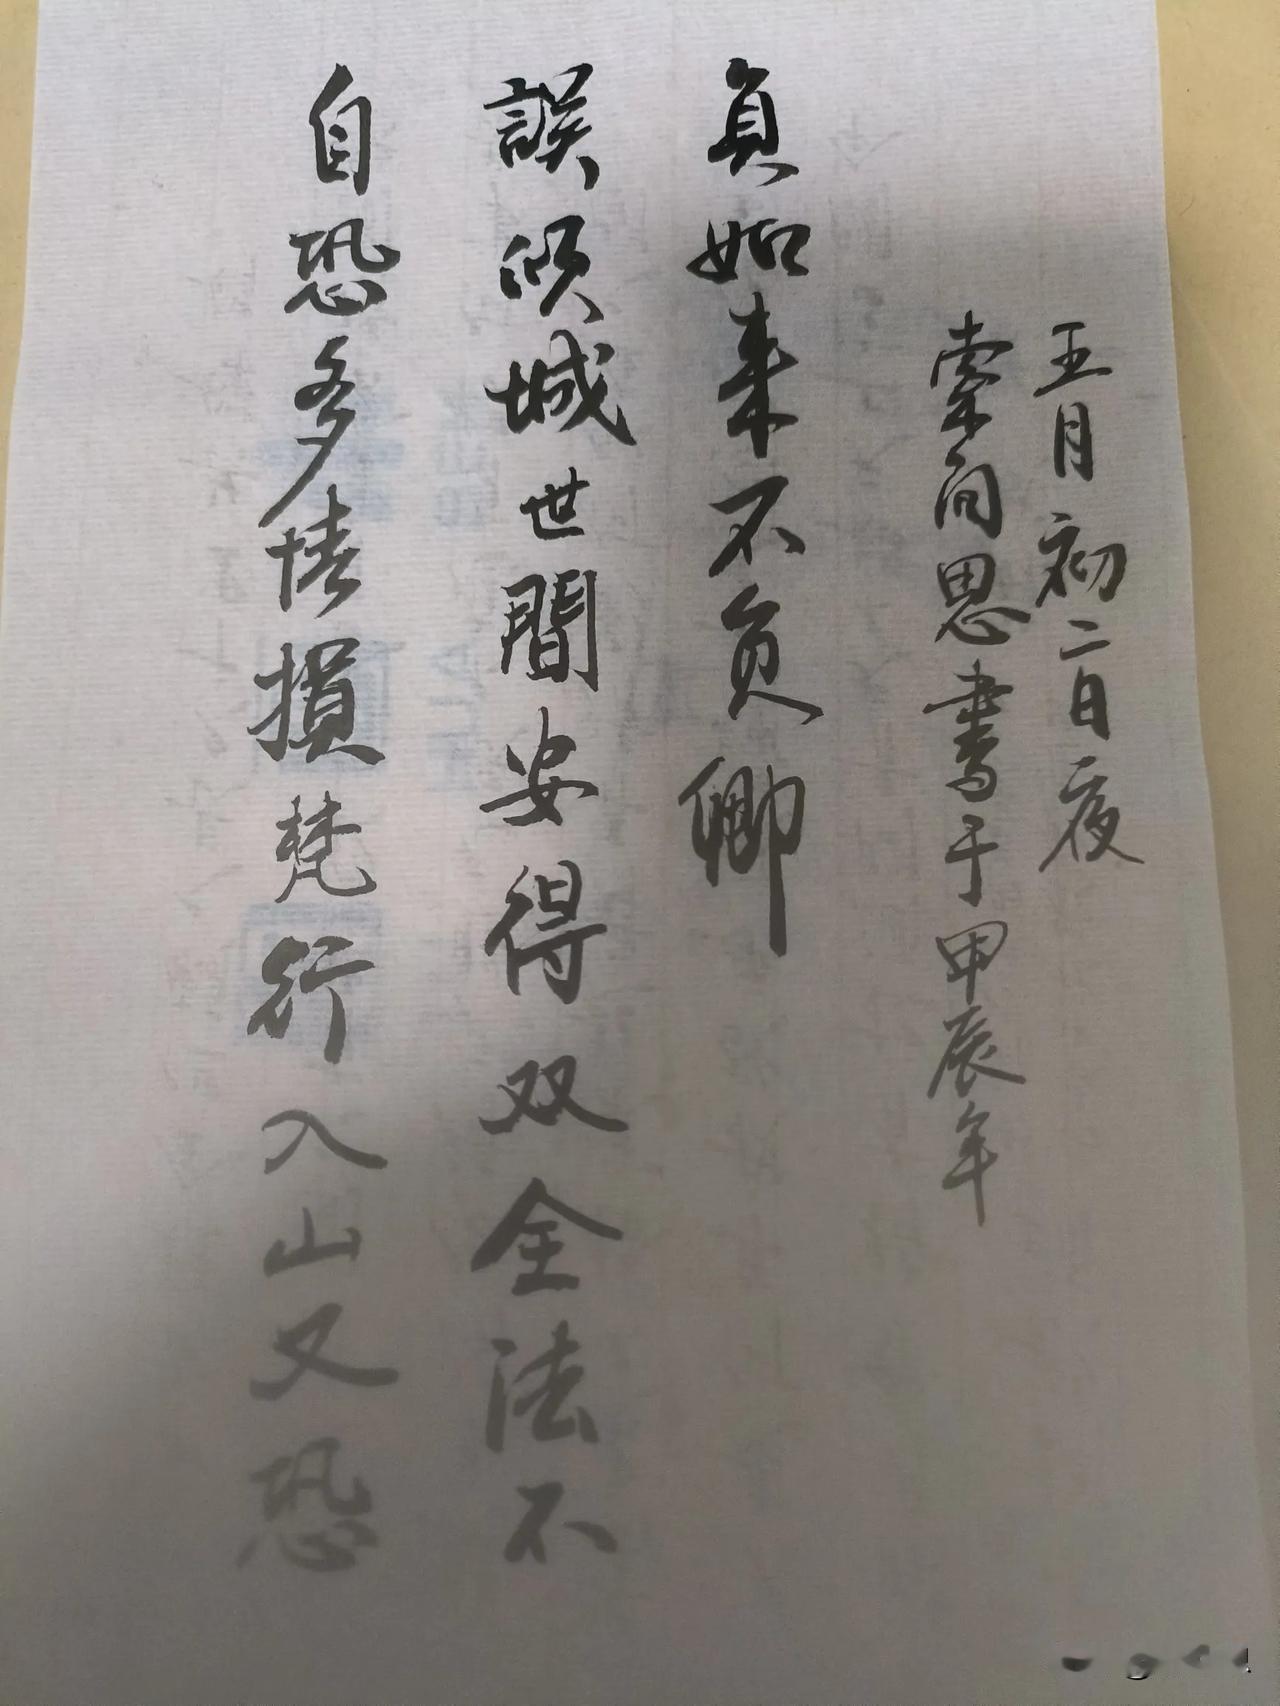 自恐多情損梵行入山又恐
誤倾城世間安得双全法不
負如来不负卿
索问思書于甲辰年
五月初二日夜